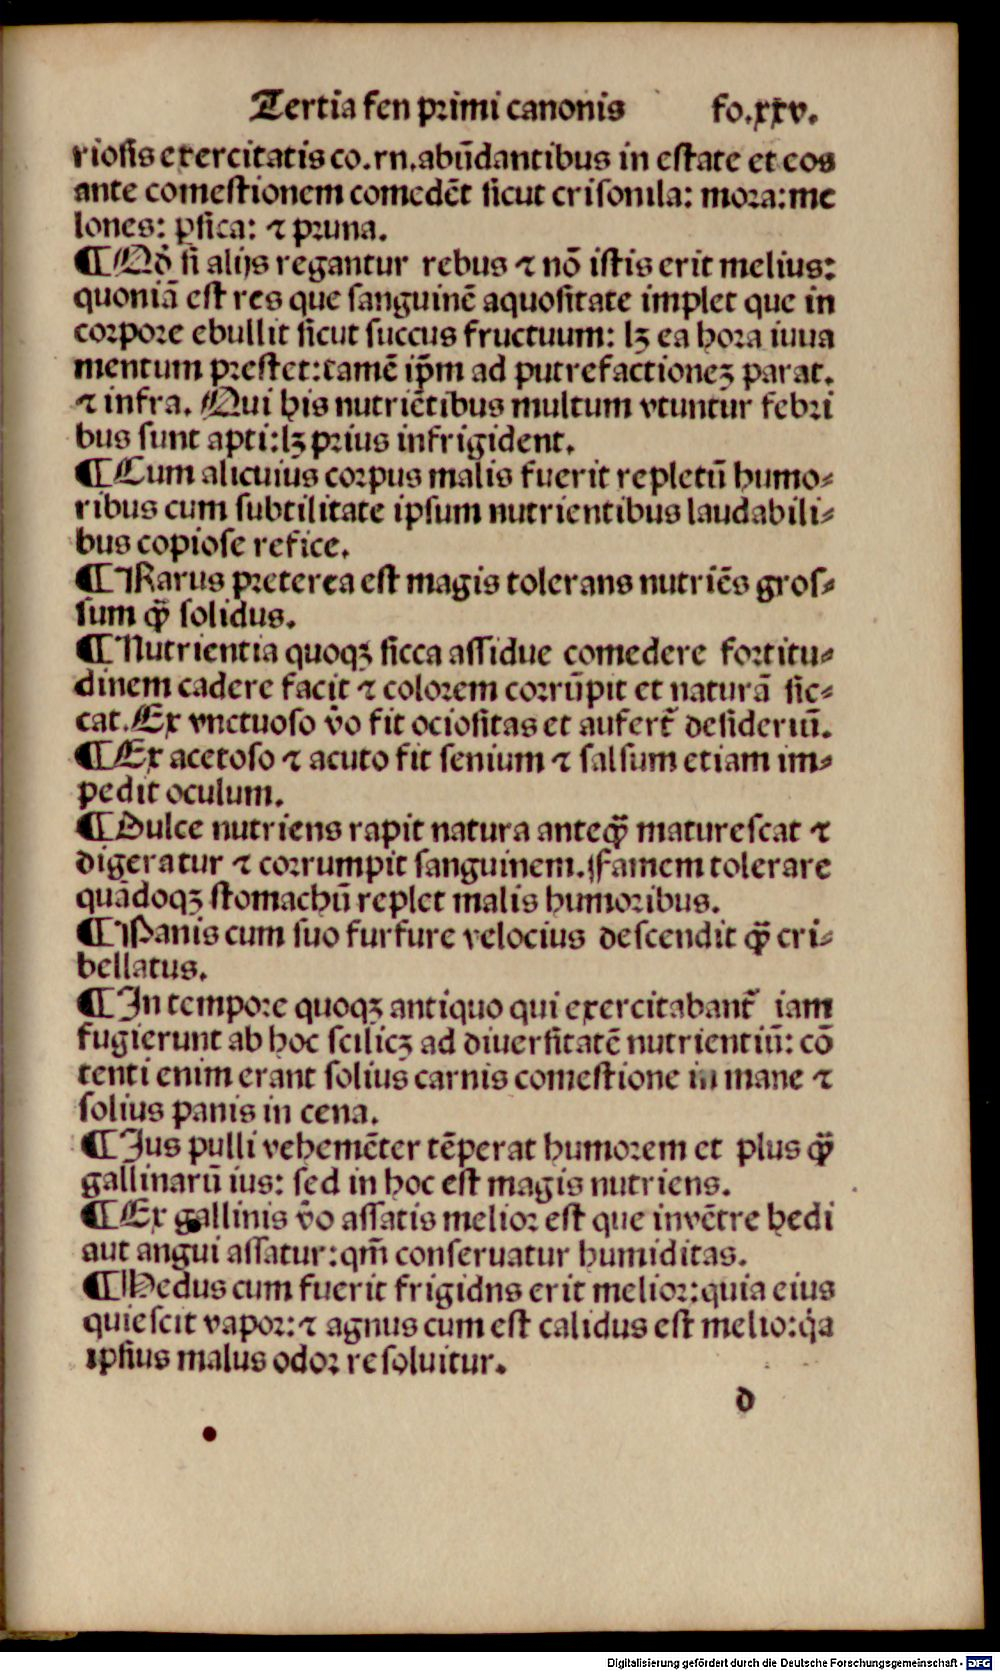 Tertia fen primi canonis fo.xxv.
riosis exercitatis co.rn.abũdantibus in estate et eos
ante comestionem comedẽt sicut crisomila: mora:me
lones: ꝑsica: ⁊ pruna.
¶Qđ si alijs regantur rebus ⁊ nõ istis erit melius:
quoniã est res que sanguinẽ aquositate implet que in
corpore ebullit sicut succus fructuum: lꝫ ea hora iuua
mentum prestet:tamẽ ip̃m ad putrefactioneꝫ parat.
⁊ infra. Qui his nutriẽtibus multum vtuntur febri
bus sunt apti:lꝫ prius infrigident.
¶Cum alicuius corpus malis fuerit repletũ humo-
ribus cum subtilitate ipsum nutrientibus laudabili-
bus copiose refice.
¶Rarus preterea est magis tolerans nutriẽs gros-
sum qꝫ̃ solidus.
¶Nutrientia quoqꝫ sicca assidue comedere fortitu-
dinem cadere facit ⁊ colorem corrũpit et naturã sic-
cat.Ex vnctuoso ṽo fit ociositas et aufert̃ desideriũ.
¶Ex acetoso ⁊ acuto fit senium ⁊ salsum etiam im-
pedit oculum.
¶Dulce nutriens rapit natura anteqꝫ̃ maturescat ⁊
digeratur ⁊ corrumpit sanguinem.Famem tolerare
quãdoqꝫ stomachũ replet malis humoribus.
¶Panis cum suo furfure velocius descendit qꝫ̃ cri-
bellatus.
¶In tempore quoqꝫ antiquo qui exercitabant̃ iam
fugierunt ab hoc scilicꝫ ad diuersitatẽ nutrientiũ: cõ
tenti enim erant solius carnis comestione in mane ⁊
solius panis in cena.
¶Jus pulli vehemẽter tẽperat humorem et plus qꝫ̃
gallinarũ ius: sed in hoc est magis nutriens.
¶Ex gallinis ṽo assatis melior est que invẽtre hedi
aut angui assatur:qm̃ conseruatur humiditas.
¶Hedus cum fuerit frigidns erit melior:quia eius
quiescit vapor:⁊ agnus cum est calidus est melio:q̇a
ipsius malus odor resoluitur.
d
Digitalisierung gefördert durch die Deutsche Forschungsgemeinschaft - DFG